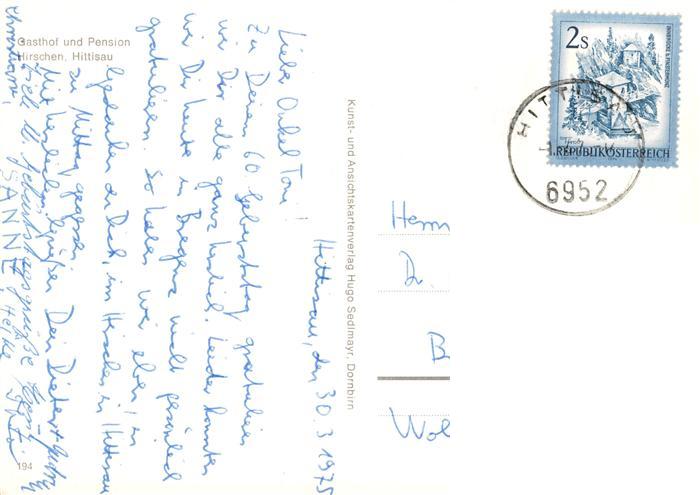 Gasthof und Pension
Hirschen, Hittisau
Hittisau, den 30.3.1975
Lieber Onkel Toni!
Zu Deinem 60 Geburtstag gratulieren
wir Dir alle ganz herzlich. Leider konnten
wir Dir heute in Bregenz nicht persönlich
gratulieren. So haben wir eben, in
Gedanken an Dich, im Hirschen in Hittisau
zu Mittag gegessen.
Mit herzlichen Grüßen Dein
SANNE, Heike
194
Kunst- und Ansichtskartenverlag Hugo Sedlmayr, Dornbirn
2 S
REPUBLIK ÖSTERREICH
HITTISAU
6952
Herrn
Dr.
B
Wol